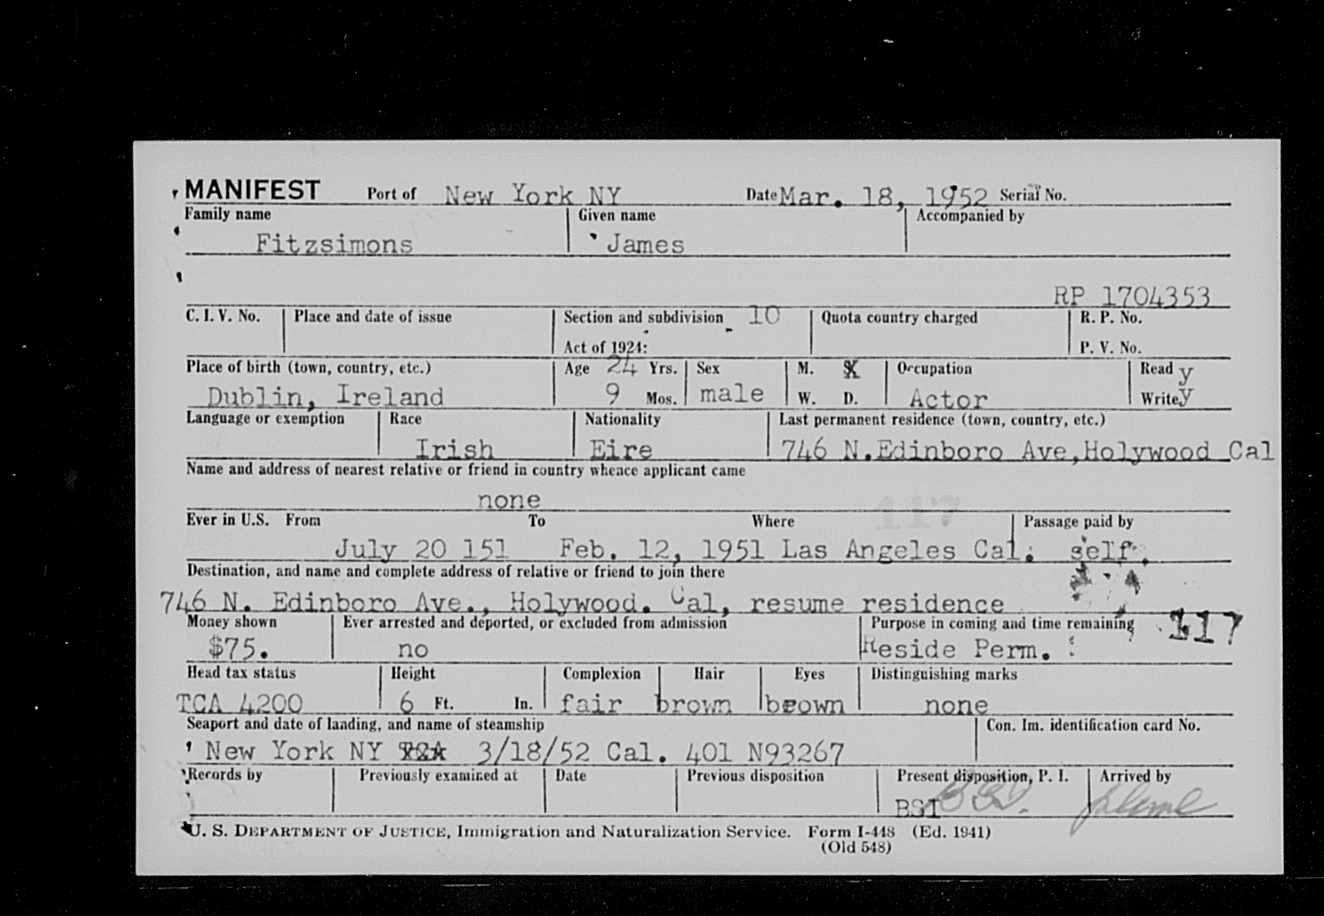 MANIFEST Port of New York NY Date Mar. 18, 1952 Serial No.
Family name Given name Accompanied by
Fitzsimons James
RP 1704353
C. I. V. No. Place and date of issue Section and subdivision 10 Quota country charged R. P. No.
Act of 1924: P. V. No.
Place of birth (town, country, etc.) Age 24 Yrs. Sex M. S. Occupation Read y
Dublin, Ireland 9 Mos. male W. D. Actor Write y
Language or exemption Race Nationality Last permanent residence (town, country, etc.)
Irish Eire 746 N.Edinboro Ave,Holywood Cal
Name and address of nearest relative or friend in country whence applicant came
none
117
Ever in U.S. From To Where Passage paid by
July 20 151 Feb. 12, 1951 Las Angeles Cal. self.
Destination, and name and complete address of relative or friend to join there
746 N. Edinboro Ave., Holywood. Cal, resume residence
Money shown Ever arrested and deported, or excluded from admission Purpose in coming and time remaining 117
$75. no Reside Perm.
Head tax status Height Complexion Hair Eyes Distinguishing marks
TCA 4200 6 Ft. In. fair brown brown none
Seaport and date of landing, and name of steamship Con. Im. identification card No.
New York NY 3/18/52 Cal. 401 N93267
Records by Previously examined at Date Previous disposition Present disposition, P. I. Arrived by
BSI
U. S. DEPARTMENT OF JUSTICE, Immigration and Naturalization Service. Form I-448 (Ed. 1941)
(Old 548)